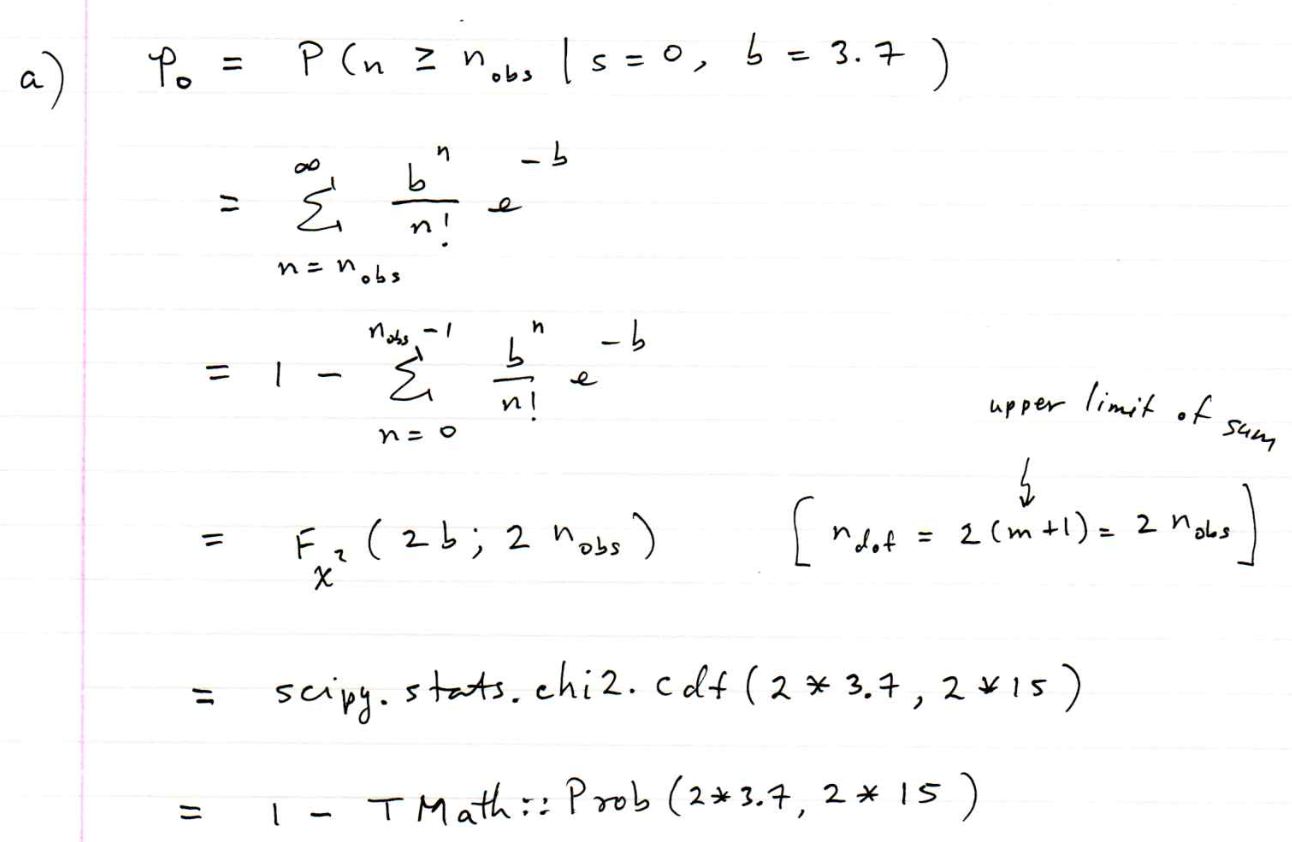 a) p₀ = P(n ≥ n_obs | s = 0, b = 3.7)
= ∑_{n = n_obs}^{∞} b^n / n! e^{-b}
= 1 - ∑_{n = 0}^{n_obs - 1} b^n / n! e^{-b}
upper limit of sum
↓
= F_{χ²}(2b; 2n_obs) [n_dof = 2(m+1) = 2n_obs]
= scipy.stats.chi2.cdf(2*3.7, 2*15)
= 1 - TMath::Prob(2*3.7, 2*15)